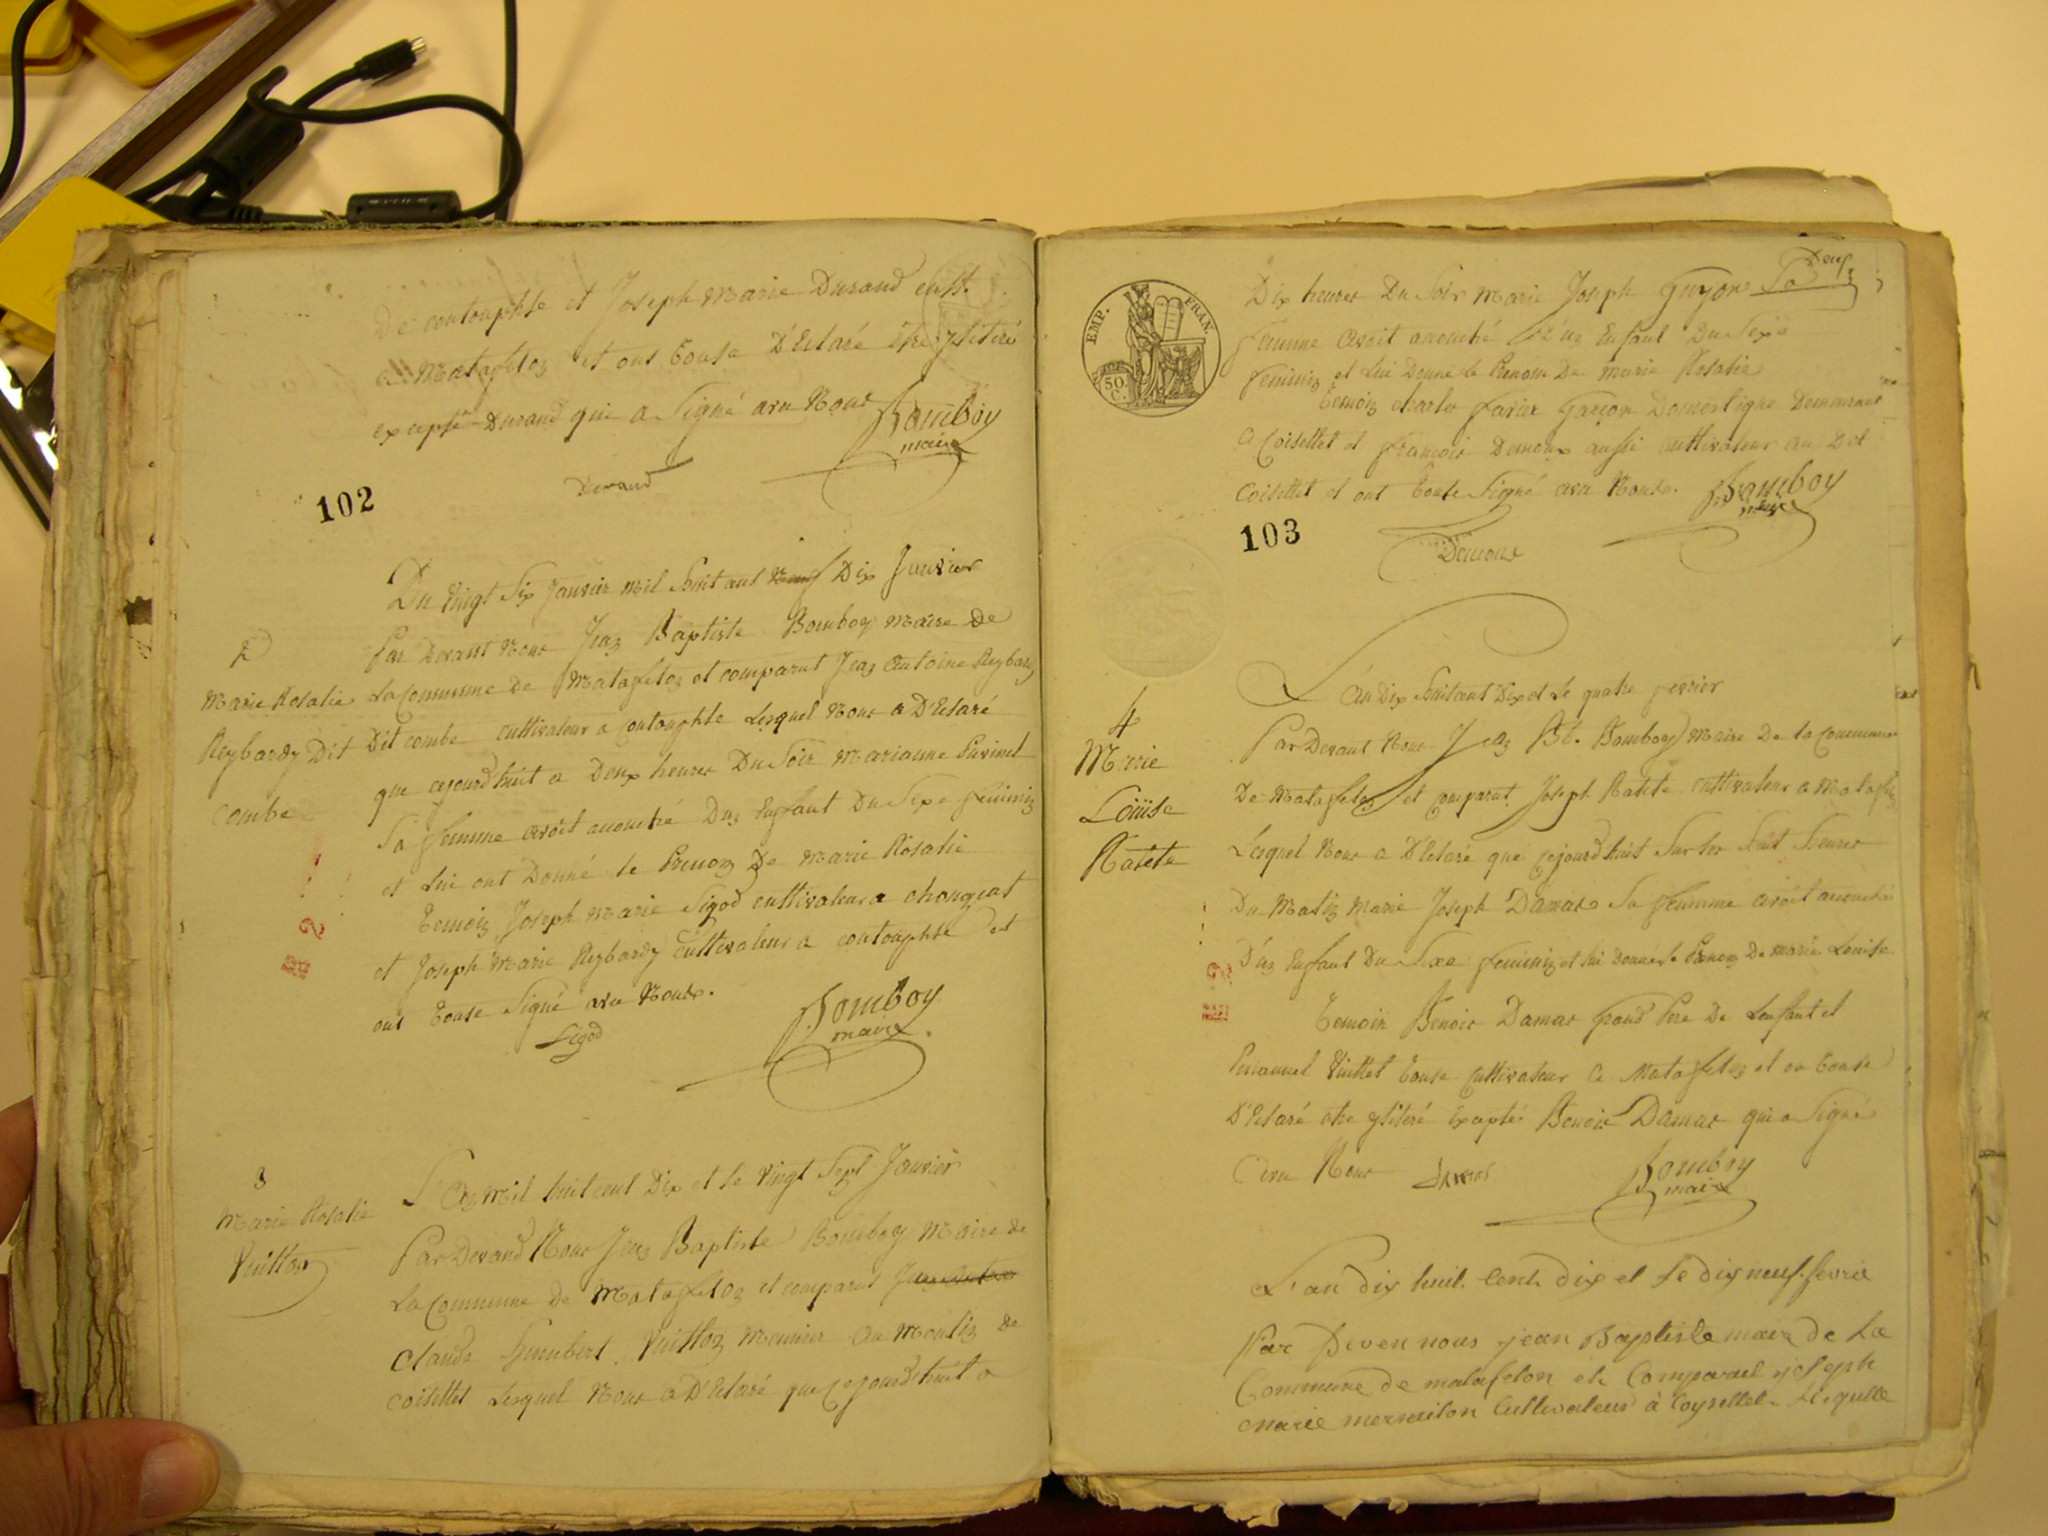 De contouphle et Joseph Marie Durand cult.
a Matafeloz et ont touse D'Eclaré être yliteré
excepté Durand qui a Signé avu Nous Bomboy
maire
Durand
102
Du vingt Six Janvier mil huit cent neuf Dix Janvier
Par Devant Nous Jeaz Baptiste Bomboy Maire de
2
Marie Rosalie
Reybardy Dit
Combe
La Commune de Matafeloz et comparut Jeaz Antoine Reybardy
Dit combe cultivateur a contouphle Lesquel Nous a D'Eclaré
que cejourd'huit a Deux heures Du Soir Marianne
Sa femme avoit accouché Duz Enfant Du Sexe feminiz
et Lui ont Donné le Prenoz De Marie Rosalie
Temoiz Joseph Marie Sigod cultivateur a chougeat
et Joseph Marie Reybardy cultivateur a contouphle et
ont touse Signé avu Nouse.
Sigod
Bomboy
maire
3
Marie Rosalie
Vuittoz
L'Az Mil huit cent Dix et le vingt Sept Janvier
Par Devand Nous Jeaz Baptiste Bomboy Maire de
La Commune de Matafeloz et comparut
Claude humbert Vuittoz Meunier Au Mouliz de
coisellet Lesquel Nous a D'Eclaré que cejourd'huit a
Deuf
EMP. FRAN.
50.
C.
Dix heures Du Soir Marie Joseph Guyon Sa
femme avoit accouché D'uz Enfant Du Sexe
feminiz et Lui Donne le Prenom De marie Rosalie
Temoiz charles favier Garçon Domestique Demeurant
a Coisellet et François Demoux aussi cultivateur au Dit
Coisellet et ont touse Signé avu Nouse. Bomboy
maire
103
Demoux
L'An Dix huit cent Dix et Le quatre fevrier
4
Marie
Loüise
Ratete
Par Devant Nous Jeaz Bt. Bomboy Maire De la Commune
De Matafeloz et comparut Joseph Ratete cultivateur a Matafeloz
Lesquel Nous a D'Eclaré que cejourd'huit Sur les Sait heures
Du Matiz Marie Joseph Damas Sa femme avoit accouchée
D'uz Enfant Du Sexe feminiz et Lui Donné le Prenoz De marie Louise
Temoin Benoit Damas Grand Pere De Lenfant et
Emanuel Vuittet touse cultivateur a Matafeloz et on touse
D'Eclaré être yliteré Exaptés Benoit Damas qui a Signé
avu Nous Damas
Bomboy
maire
L'an dix huit Cent dix et Le dix neuf fevrie
Par Deven nous jean Baptiste maire de La
Commune de matafelon et Comparut joseph
marie mermilon Cultivateur à Coysellet Lequelle